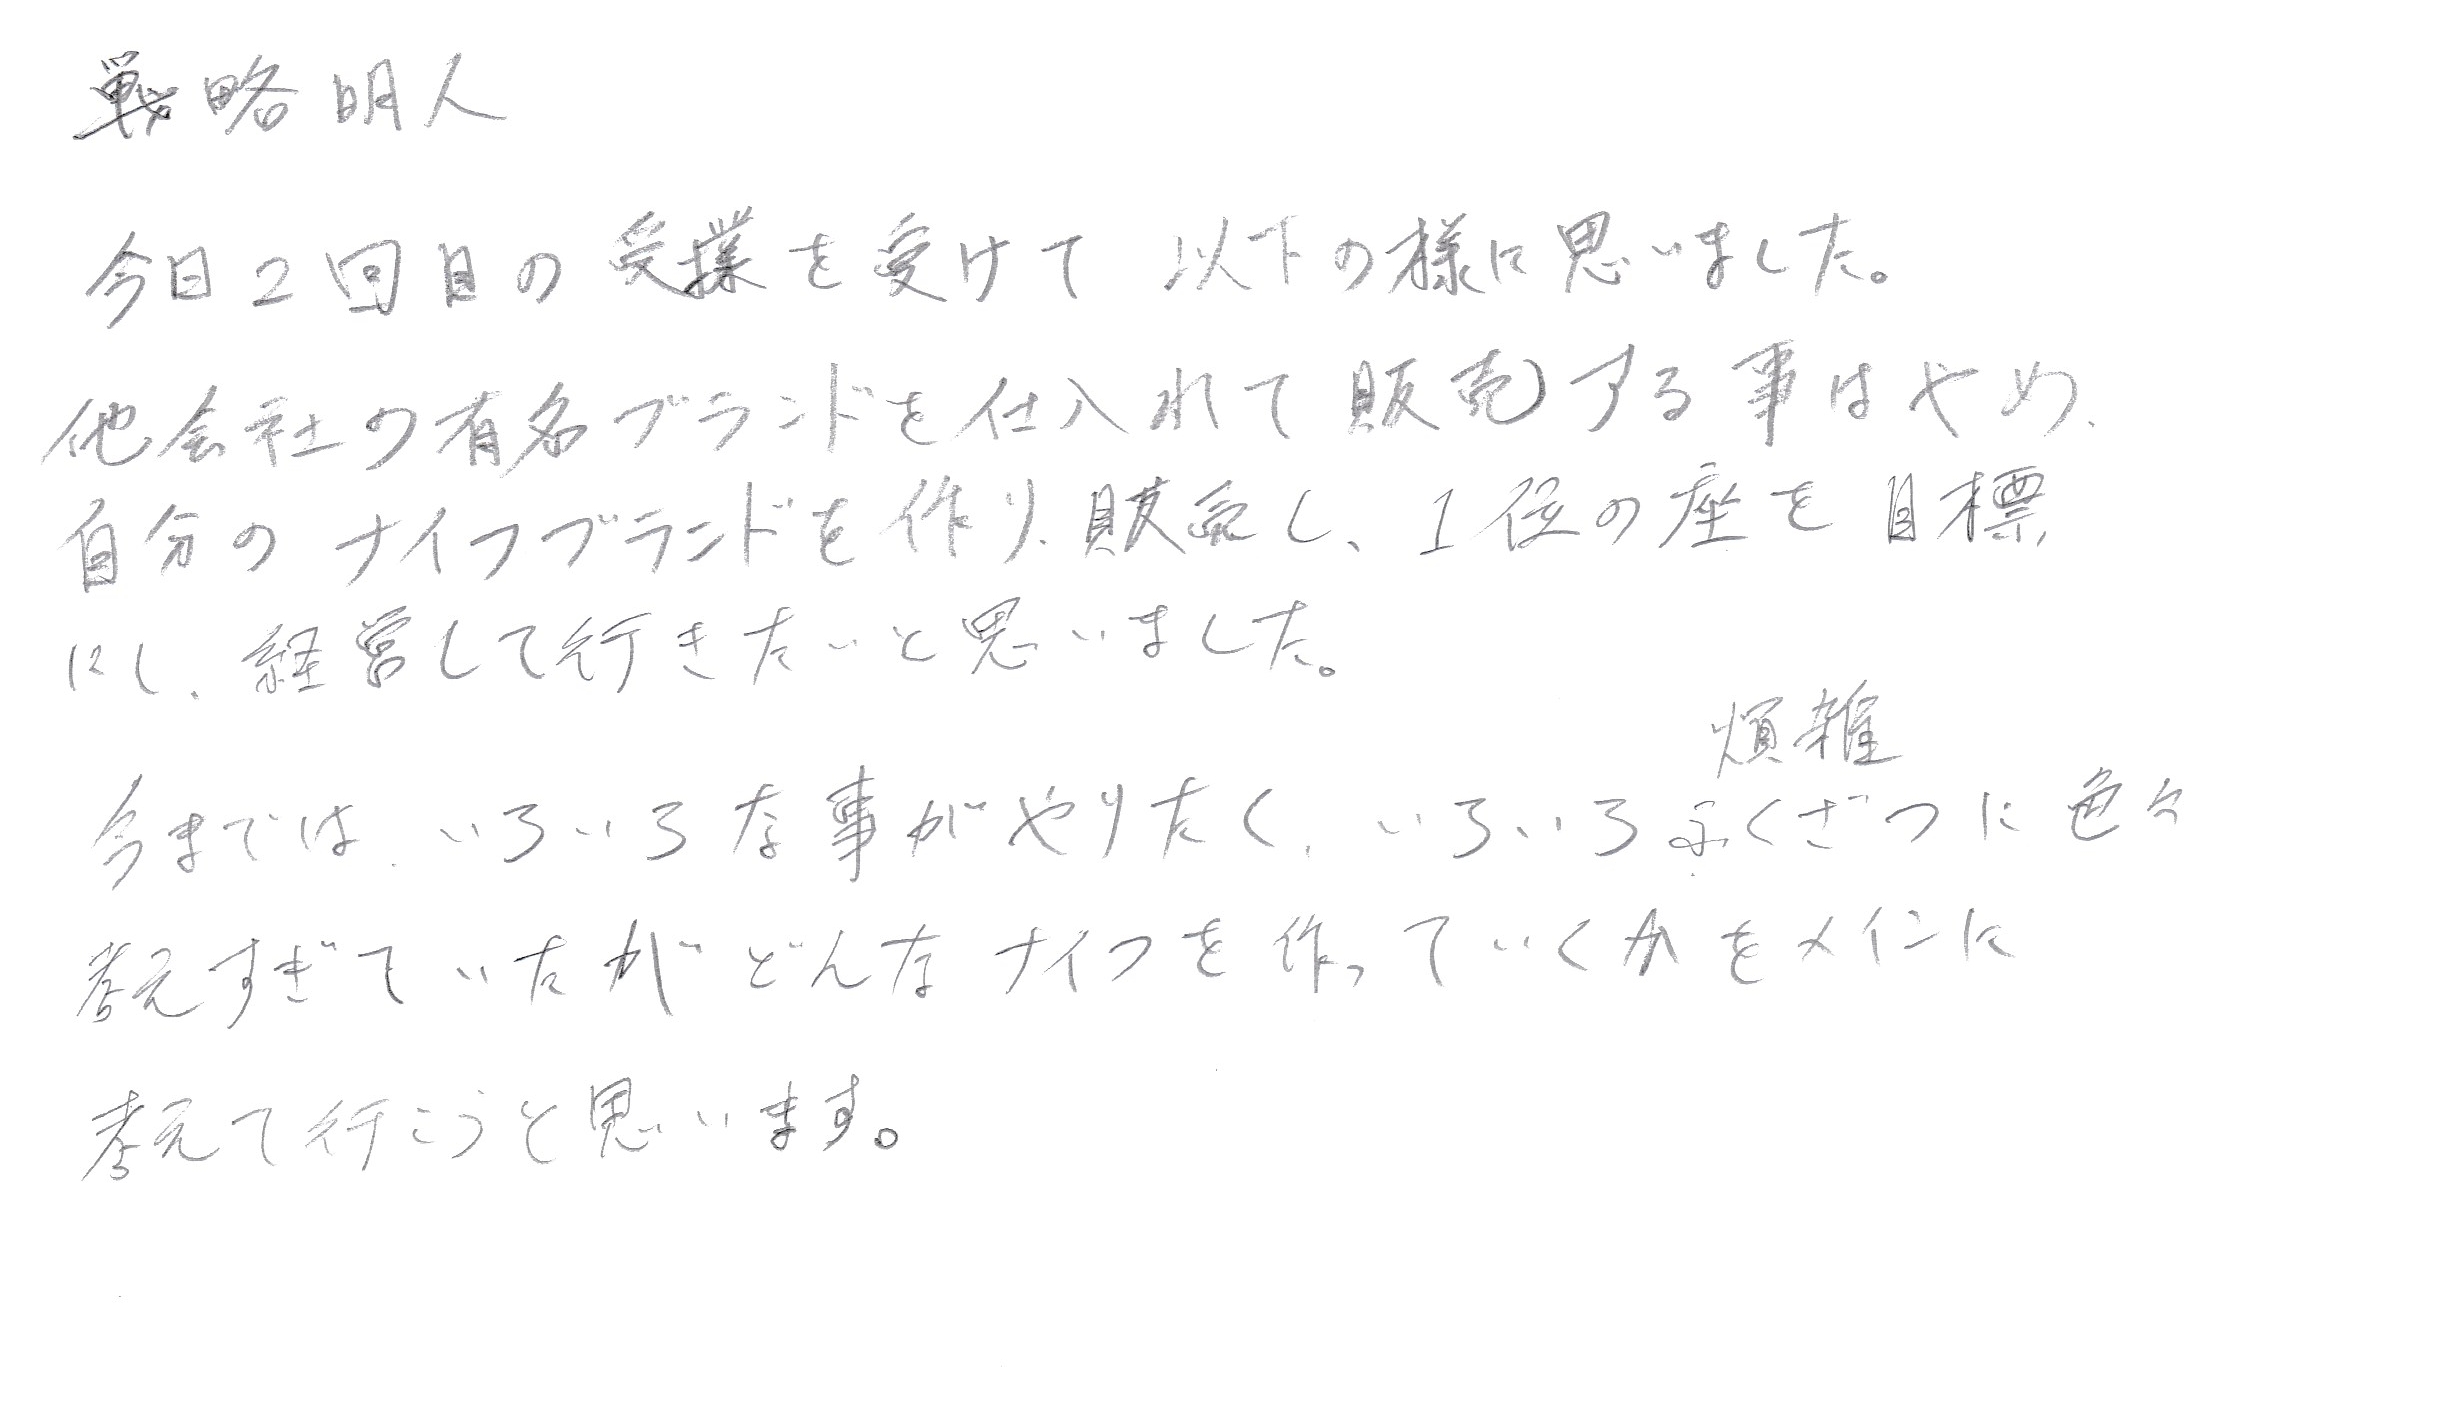 戦略明人
今日2回目の受業を受けて 以下の様に思いました。
他会社の有名ブランドを仕入れて販売する事はやめ、
自分のナイフブランドを作り、販売し、1位の座を目標
にし、経営して行きたいと思いました。
煩雑
今までは、いろいろな事がやりたく、いろいろふくざつに色々
考えすぎていたがどんなナイフを作っていくかをメインに
考えて行こうと思います。